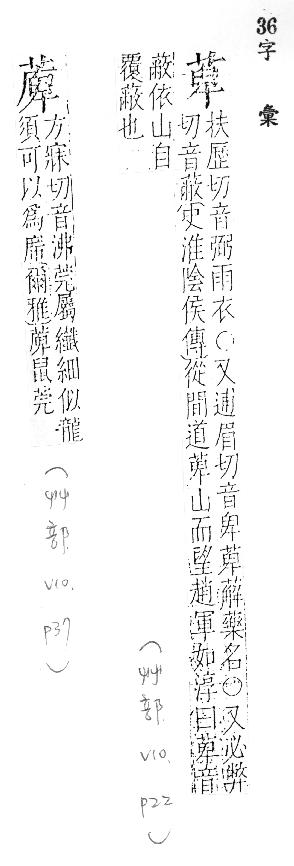 36
字彙
萆
扶歷切音弼雨衣○又逋眉切音卑萆薢藥名○又必弊
切音蔽史淮陰侯傳從間道萆山而望趙軍如淳曰萆音
蔽依山自
覆蔽也
(艸部 V10. P22)
䕠
方寐切音沸莞屬纖細似龍
須可以爲席爾雅䕠鼠莞
(艸部 V10. P37)